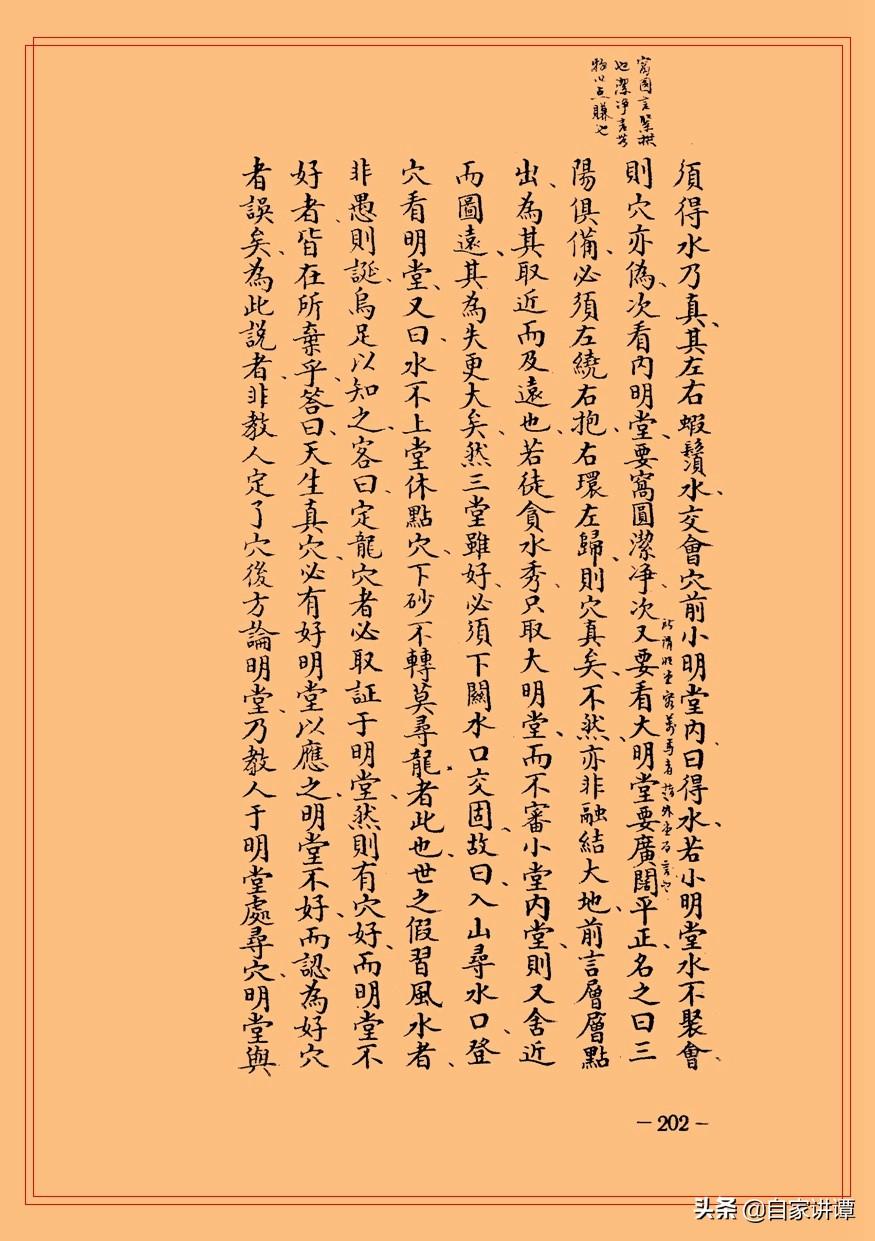 窩圓言架拱
也潔净言芳
物以点賺也
須得水乃真、其左右蝦鬚水、交會穴前小明堂內、曰得水、若小明堂水不聚會、
則穴亦偽、次看內明堂、要窩圓潔净、次又要看大明堂、要廣闊平正、名之曰三
所謂明堂容萬馬者指外堂而言也
陽俱備、必須左繞右抱、右環左歸、則穴真矣、不然、亦非融結大地、前言層層點
出、為其取近而及遠也、若徒貪水秀、只取大明堂、而不審小堂內堂、則又舍近
而圖遠、其為失更大矣、然三堂雖好、必須下關水口交固、故曰、入山尋水口、登
穴看明堂、又曰、水不上堂休點穴、下砂不轉莫尋龍者此也、世之假習風水者、
非愚則誕、烏足以知之、客曰、定龍穴者必取証于明堂、然則有穴好、而明堂不
好者、皆在所棄乎、答曰、天生真穴、必有好明堂以應之、明堂不好、而認為好穴
者誤矣、為此説者、非教人定了穴後方論明堂、乃教人于明堂處尋穴、明堂與
－202－
头条 @自家讲谭